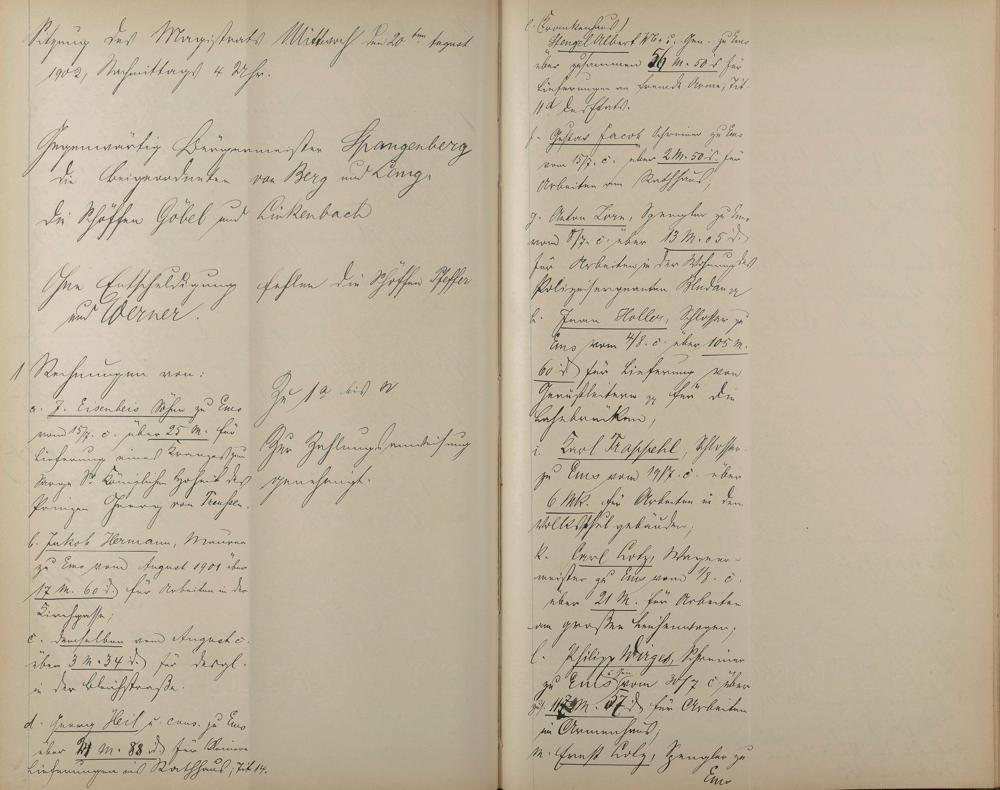 Sitzung des Magistrats Mittwoch den 20ten August
1902, Nachmittags 4 Uhr.
Gegenwärtig Bürgermeister Spangenberg
die Beigeordneten von Berg und Linz.
die Schöffen Göbel und Linkenbach
Ohne Entschuldigung fehlen die Schöffen Pfeffer
und Werner.
1 Rechnungen von:
a. J. Eisenbeis Söhne zu Ems
vom 15/7. c. über 25 M. für
Lieferung eines Kranzes zum
Sarge Sr. Königlichen Hoheit des
Prinzen Georg von Preussen.
b. Jakob Hermann, Maurer
zu Ems vom August 1901 über
17 M. 60 d. für Arbeiten in der
Kirchgasse;
c. demselben vom August c.
über 3 M. 34 d. für desgl.
in der Bleichstraße.
d. Georg Heil u. cons. zu Ems
über M. 88 d. für kleinere
Lieferungen ins Rathhaus; Tit 14.
Zu 1a bis n
Zur Zahlungsanweisung
genehmigt.
e. Krankenhaus
Stengel Albert Gen. zu Ems
über zusammen 56 M. 50 d für
Lieferungen an fremde Arme; Tit.
11d des Etats.
f. Gustav Jacob Schreiner zu Ems
vom 15/7. c. über 2 M. 50 d. für
Arbeiten am Rathhaus;
g. Anton Zorn, Spengler zu Ems
vom 8/7. c. über 13 M. 05 d.
für Arbeiten in der Wohnung des
Polizeisergeanten
h. Holler, Schlosser zu
Ems vom 4/8. c. über 105 M.
60 d für Lieferung von
Gerüstleitern pp für die
Lahnbrücken;
i. Karl Schlosser
zu Ems vom 19/7. c. über
6 Mk. für Arbeiten in den
Volksschulgebäuden;
k. Carl Lotz, Wagner-
meister zu Ems vom 1/8. c.
über 21 M. für Arbeiten
am großen Leichenwagen;
l. Philipp Wirges, Schreiner
zu Ems u. Gen. vom 20/7 c über
M. 57 d für Arbeiten
im Armenhaus;
m. Ernst Lotz, Spengler zu
Ems